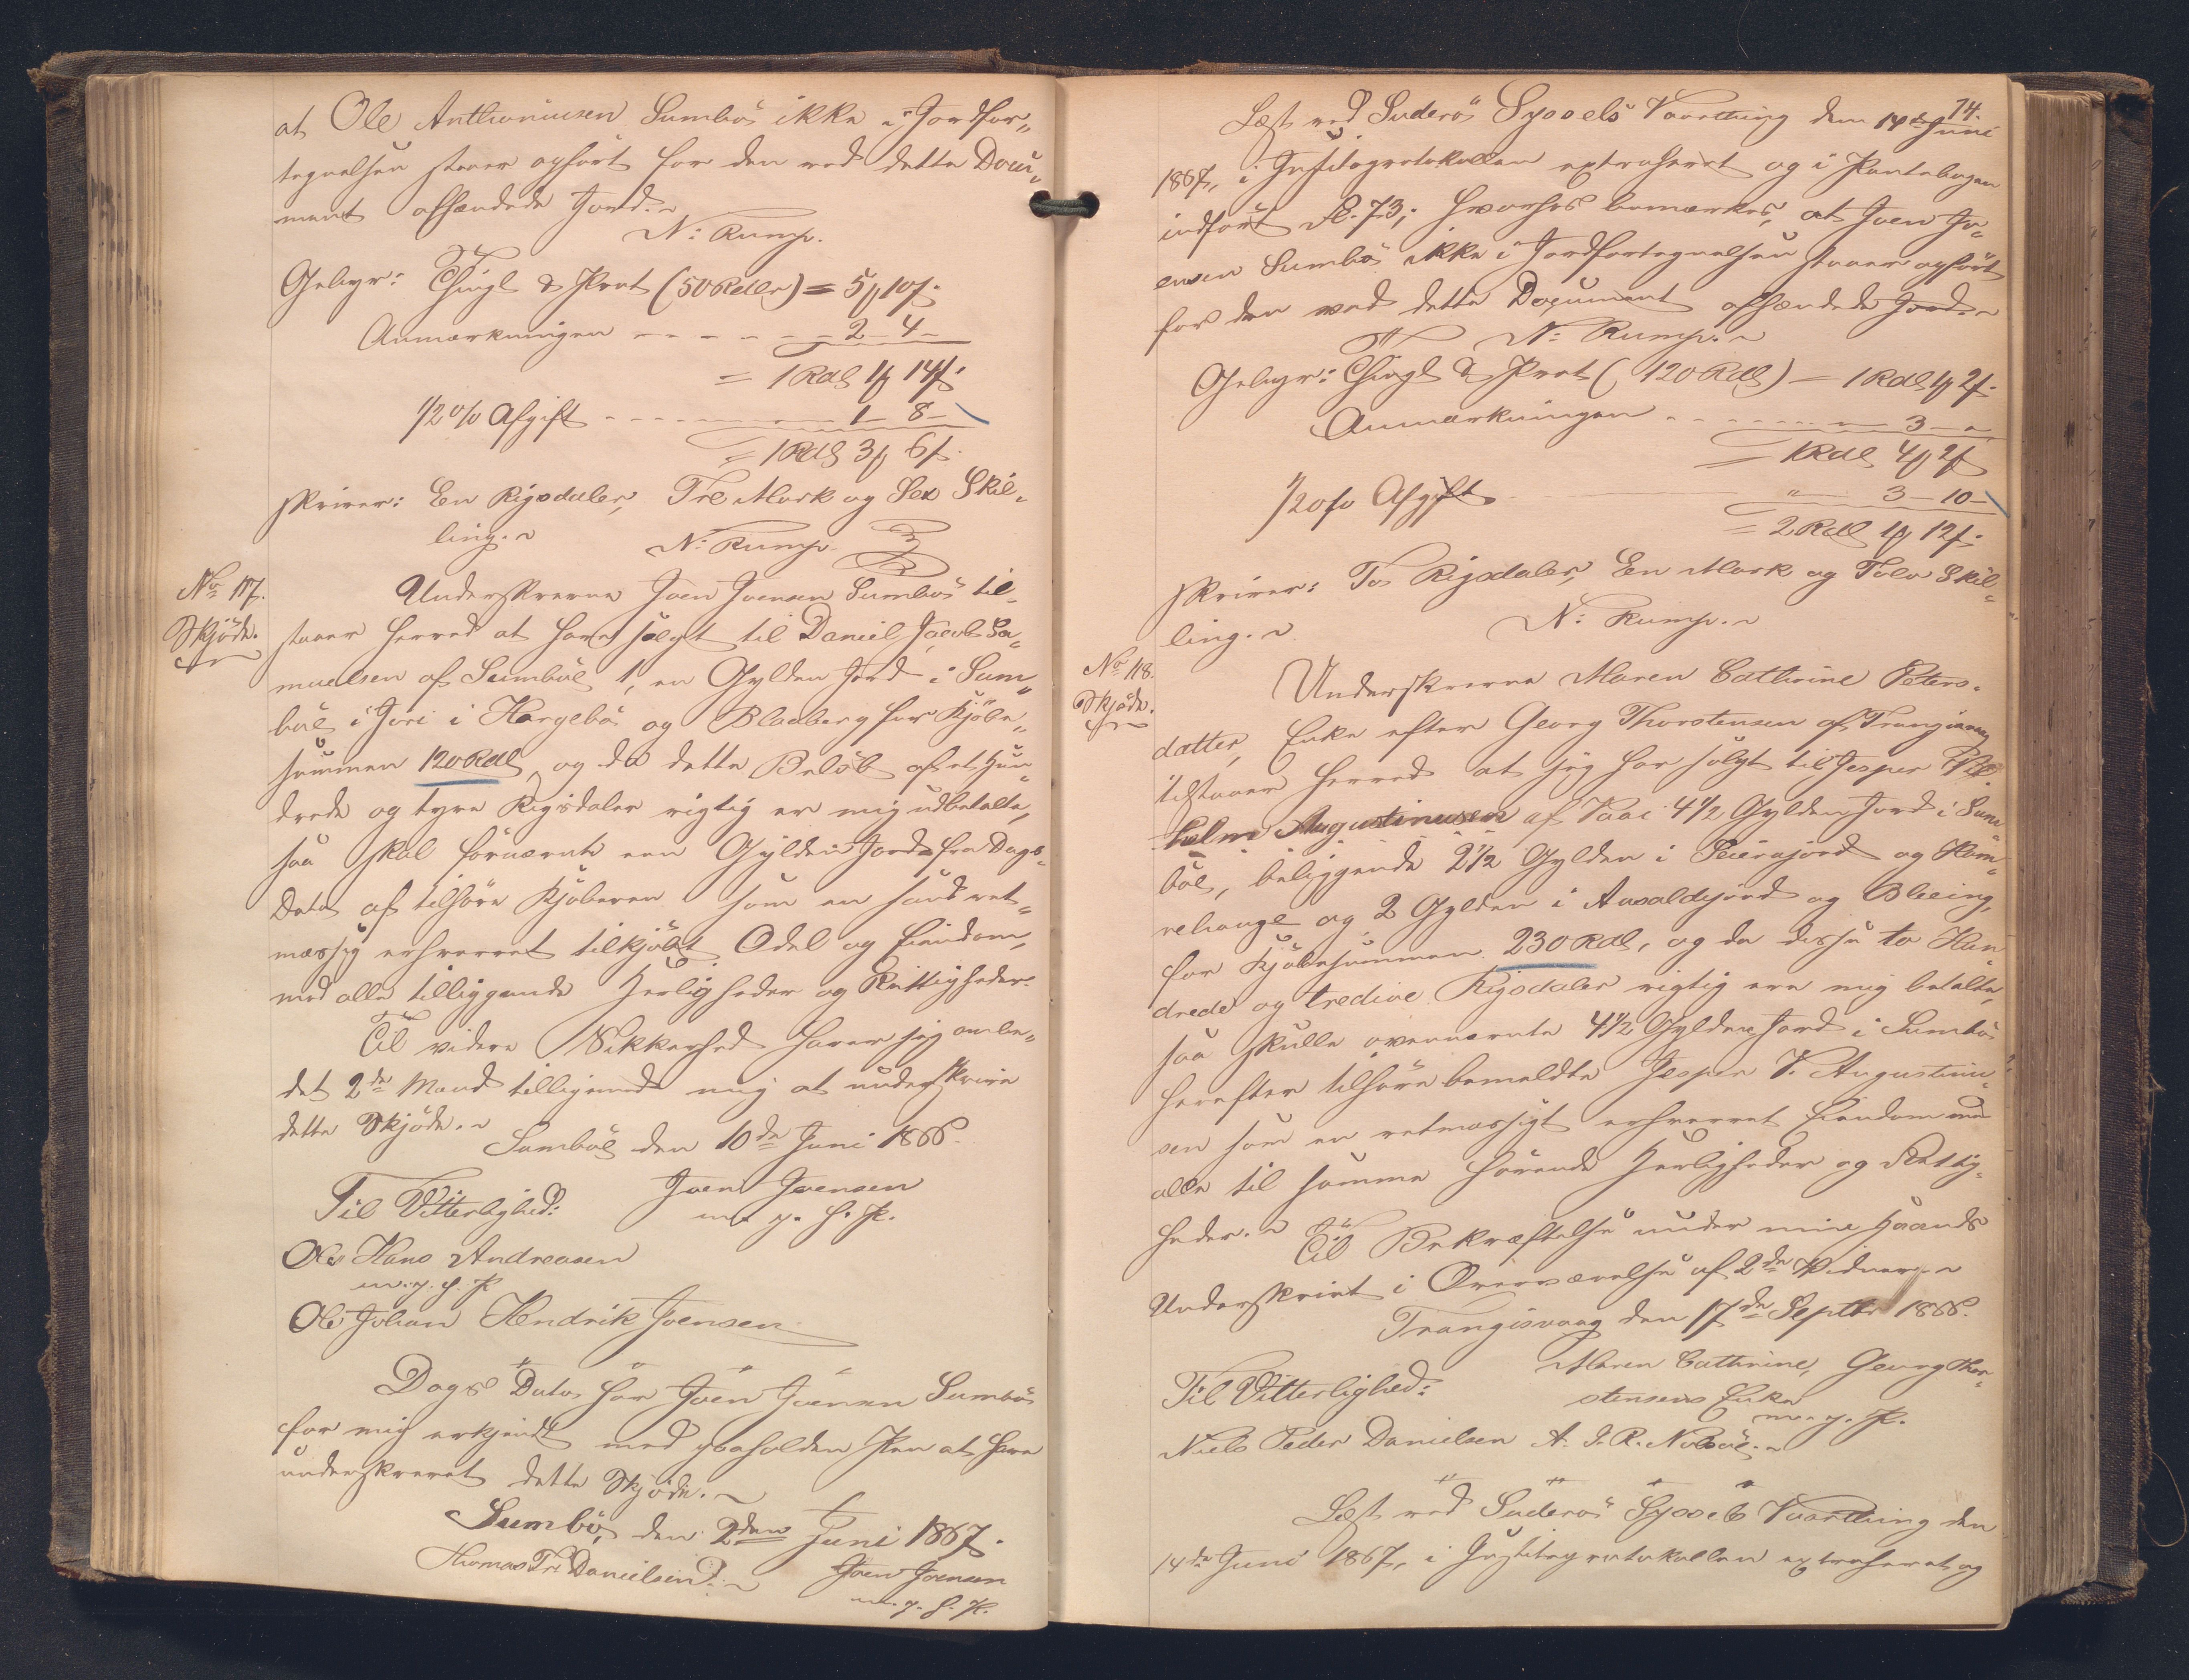 at Ole Anthoniusen Sumbö ikke i Jordfor„
tegnelsen staaer opført for den ved dette Docu„
ment afhændede Jord.
N: Rump.
Gebyr: Thingl & Prot (50 Rdlr) = 5 ₻ 10 ſ.
Anmærkningen - - - - - 2 - 4 -
= 1 Rdl 1 ₻ 14 ſ.
1/2 % Afgift - - - - - 1 - 8 -
= 1 Rdl 3 ₻ 6 ſ.
skriver: En Rigsdaler, Tre Mark og Sex Skil„
ling.
N: Rump.
No 117.
Skjöde.
Underskrevne Joen Joensen Sumbö til„
staaer herved at have solgt til Daniel Jacob Sa„
muelsen af Sumböe 1, en Gylden Jord i Sum„
böe, i Jori i Horgebö og Blaaberg for Kjöbe„
summen 120 Rdl, og da dette Belöb af et Hun„
drede og tyve Rigsdaler rigtig er mig udbetalte,
saa skal fornævnte een Gylden Jord fra Dags„
Dato af tilhöre Kjöberen som en sand ret„
mæssig erhvervet tilkjöbt Odel og Eiendom,
med alle tilliggende Herligheder og Rettigheder.
Til videre Sikkerhed haver jeg anbe„
det 2de Mænd tilligemed mig at underskrive
dette Skjöde.
Sumböe den 10de Juni 1866.
Til Vitterlighed:
Joen Joensen
m. p. f. P.
Ole Hans Andreasen
m. p. f. P.
Ole Johan Hendrik Joensen
Dags Dato har Joen Joensen Sumbö
for mig erkjendt med paaholden Pen at have
underskrevet dette Skjöde.
Sumbö, den 2den Juni 1867.
Thomas Fr. Danielsen
Joen Joensen
m. p. f. P.
74.
Læst ved Suderö Syssels Vaarthing den 14de Juni
1867, i Justitsprotokollen extraheret og i Pantebogen
indført Fol. 73; hvorhos bemærkes, at Joen Jo„
ensen Sumbö ikke i Jordfortegnelsen staaer opført
for den ved dette Document afhændede Jord.
N: Rump.
Gebyr: Thingl & Prot (120 Rdl) - 1 Rdl 1 ₻ 2 ſ.
Anmærkningen - - - - - 3 - „
= 1 Rdl 4 ₻ 2 ſ
1/2 % Afgift - „ - 3 - 10 -
= 2 Rdl 1 ₻ 12 ſ.
skriver: To Rigsdaler, En Mark og Tolv Skil„
ling.
N: Rump.
No 118.
Skjöde.
Underskrevne Maren Cathrine Peters„
datter, Enke efter Georg Thorstensen af Trangisvaag
tilstaaer herved at jeg har solgt til Jesper Vil„
helm Augustinusen af Vaai 4 1/2 Gylden Jord i Sum„
böe, beliggende 2 1/2 Gylden i Peirajord og Ham„
rehauge og 2 Gylden i Aasaldejord og Bleeing,
for Kjöbesummen 230 Rdl, og da disse to Hun„
drede og tredive Rigsdaler rigtig ere mig betalte,
saa skulle ovennævnte 4 1/2 Gylden Jord i Sumbö
herefter tilhöre bemeldte Jesper V. Augustinu„
sen som en retmæssigt erhvervet Eiendom med
alle til samme hörende Herligheder og Rettig„
heder. Til Bekræftelse under min Haands
Underskrivt i Overværelse af 2de Vidner.
Trangisvaag den 17de Septbr 1866.
Til Vitterlighed:
Maren Cathrine, Georg Thor„
stensens Enke
m. p. P.
Niels Peder Danielsen A. J. R. Nolsöe.
Læst ved Suderö Syssels Vaarthing den
14de Juni 1867, i Justitsprotokollen extraheret og